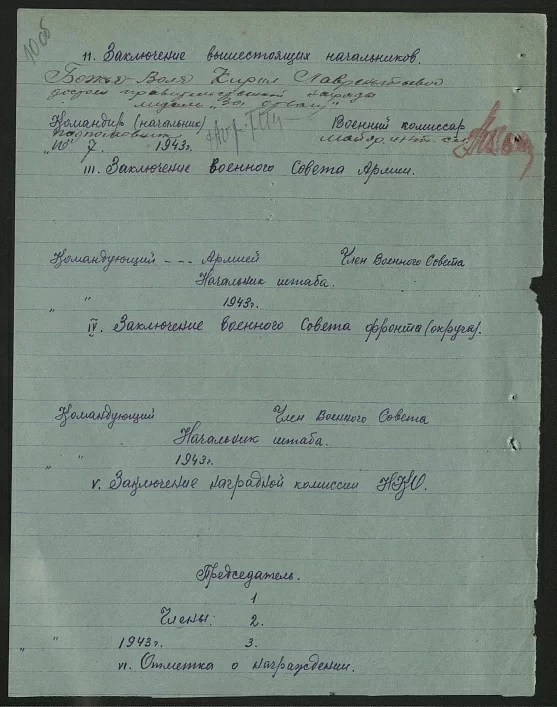 10об
II. Заключение вышестоящих начальников.
Божья-Воля Кирил Лаврентьевич
достоин правительственной награды
медаль „За отвагу"
Командир (начальник) Военный комиссар
подполковник майор
"10" 7. 1943г.
III. Заключение Военного Совета Армии.
Командующий --- Армией Член Военного Совета
Начальник штаба.
" " 1943г.
IV. Заключение Военного Совета фронта (округа).
Командующий Член Военного Совета
Начальник штаба.
" " 1943г.
V. Заключение наградной комиссии НКО.
Председатель.
1
Члены: 2.
" " 1943г. 3.
VI. Отметка о награждении.